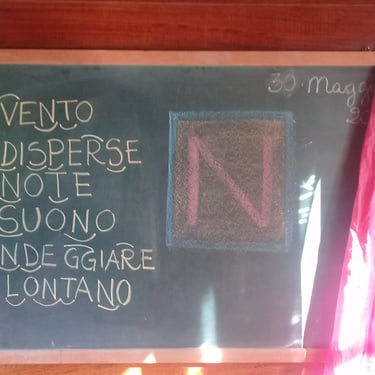 30 · Magg
VENTO
DISPERSE
NOTE
SUONO
NDEGGIARE
LONTANO
N